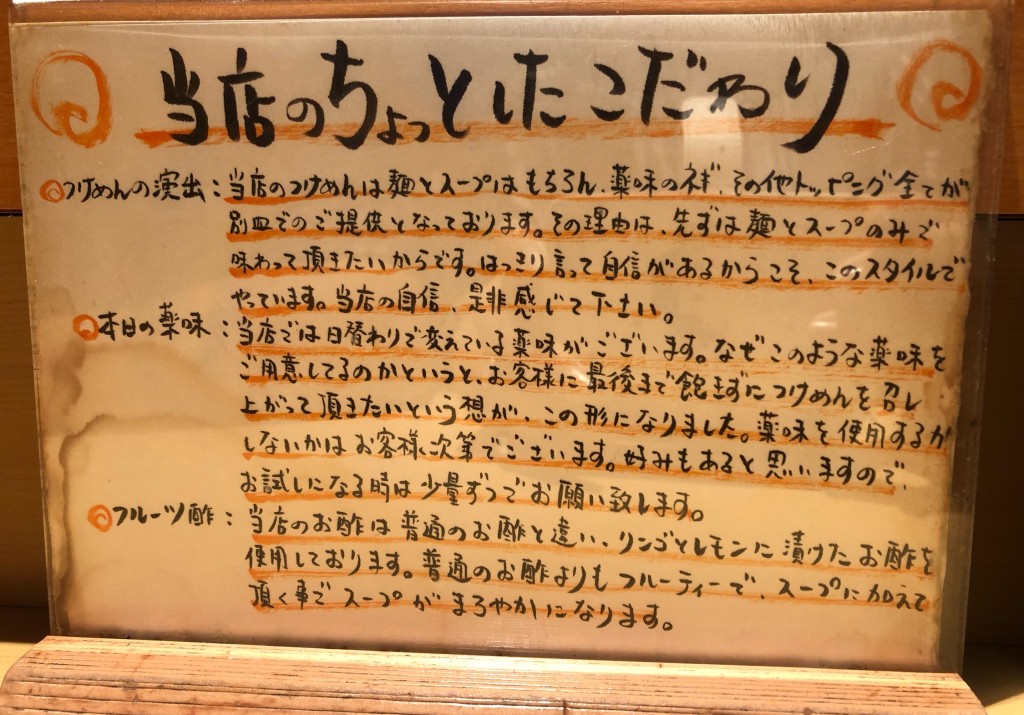 当店のちょっとしたこだわり
つけめんの演出：当店のつけめんは麺とスープはもちろん、薬味のネギ、その他トッピング全てが
別皿でのご提供となっております。その理由は、先ずは麺とスープのみで
味わって頂きたいからです。はっきり言って自信があるからこそ、このスタイルで
やっています。当店の自信、是非感じて下さい。
本日の薬味：当店では日替わりで変えている薬味がございます。なぜこのような薬味を
ご用意してるのかというと、お客様に最後まで飽きずにつけめんを召し
上がって頂きたいという想が、この形になりました。薬味を使用するか
しないかはお客様次第でございます。好みもあると思いますので、
お試しになる時は少量ずつでお願い致します。
フルーツ酢：当店のお酢は普通のお酢と違い、リンゴとレモンに漬けたお酢を
使用しております。普通のお酢よりもフルーティーで、スープに加えて
頂く事でスープがまろやかになります。